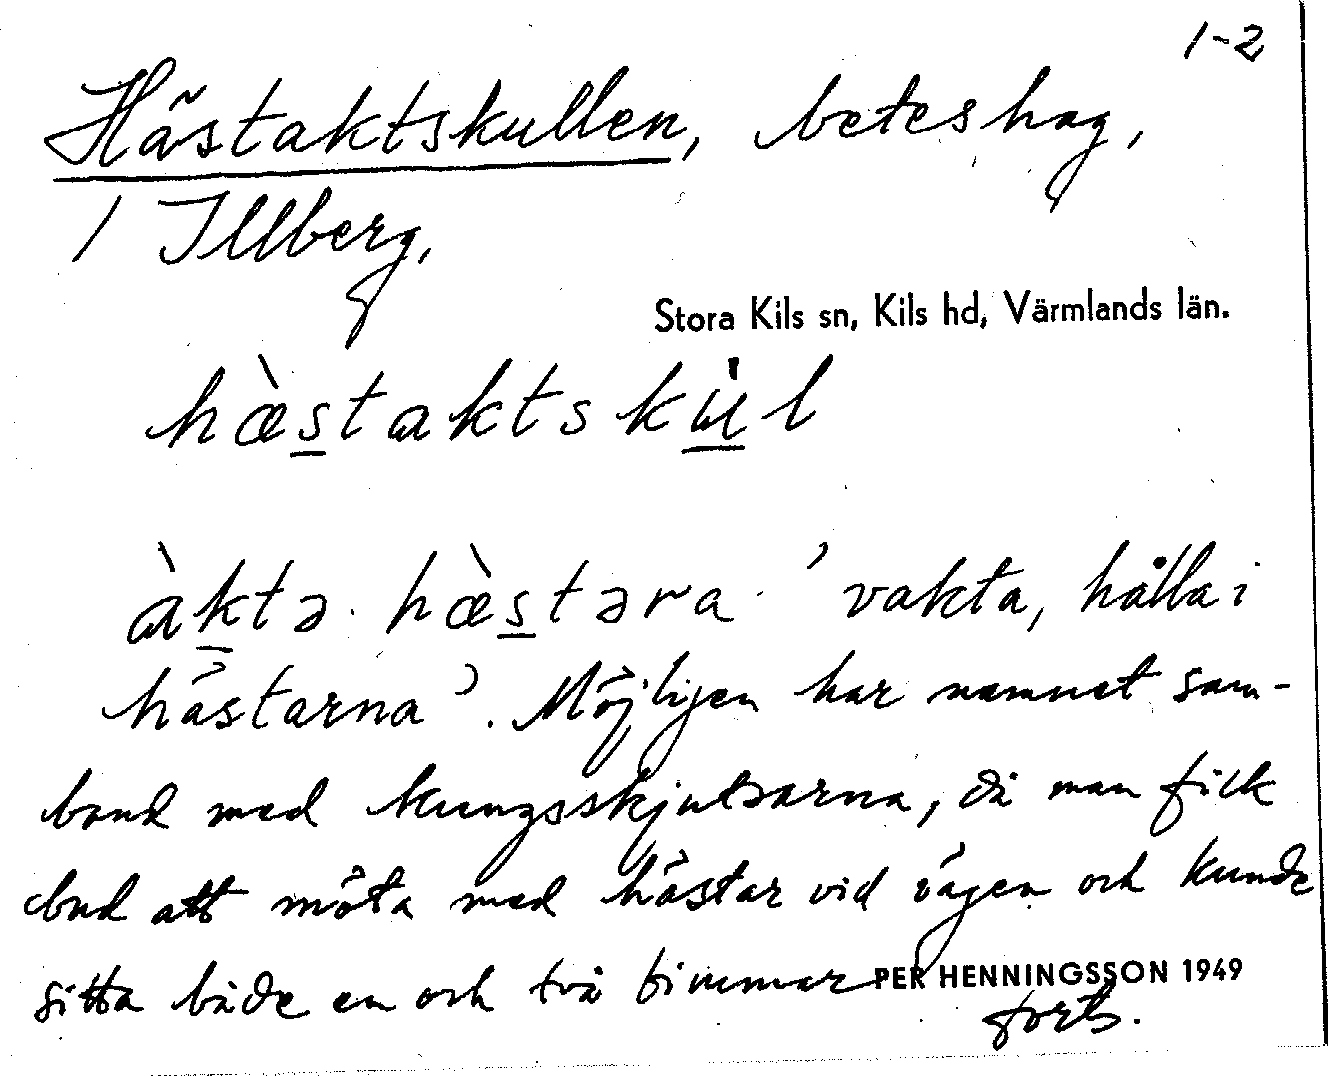 1-2
Hästaktskullen, beteshag,
/ Illberg,
Stora Kils sn, Kils hd, Värmlands län.
hæ̀staktskùl
àktə hæ̀stəra 'vakta, hålla i
hästarna'. Möjligen har namnet sam-
band med kungsskjutsarna, då man fick
bud att möta med hästar vid vägen och kunde
sitta både en och två timmar
PER HENNINGSSON 1949
forts.